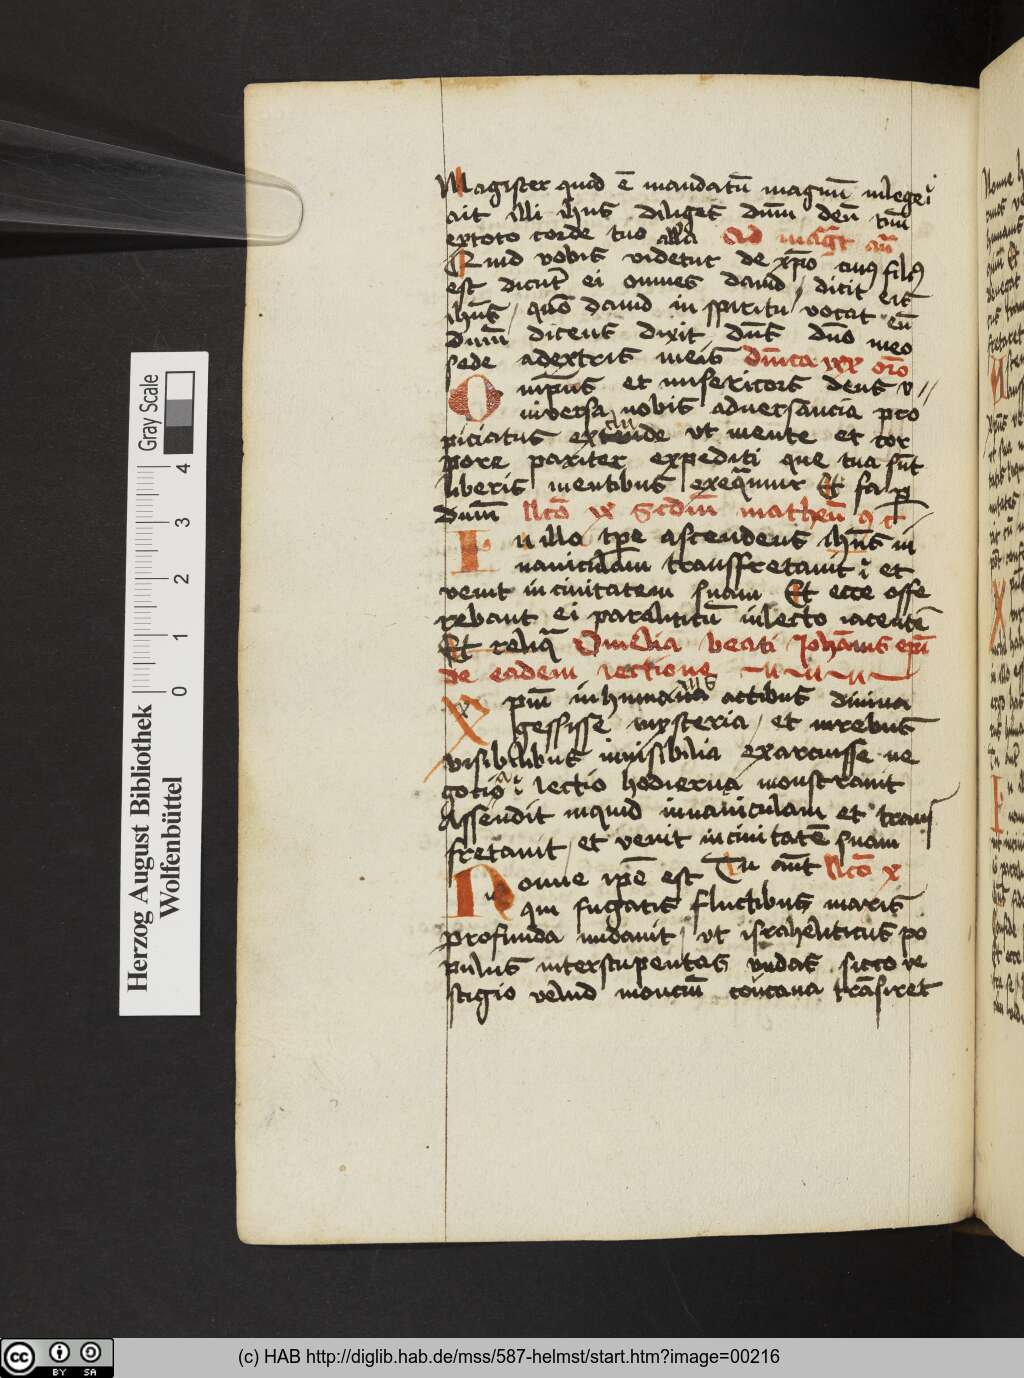 Magister quid ē mandatū magnū inlege
ait illi ihūs diliges dnm̄ deū tuū
extoto corde tuo alla Ad magr̄t an̄
Quid vobis videtur de xp̄o cuiꝰ filiꝰ
est dicūt ei omnes dauid / dicit eis
ihūs / quō dauid in spiritu vocat eū
dnm̄ dicens dixit dn̄s dn̄o meo
sede adextris meis Dn̄ica xx orō
O mīpn̄s et misericors deus v //
niuersa nobis aduersancia pro
piciatus extende vt mente et cor
pore pariter expediti que tua sūt
liberis mentibus exequamur Et fa ꝑ
dnm̄ lc̄cō x Scdm̄ matheū 9 c̄
I n illo tꝑe ascendens ihūs in
nauiculam transfretauit et
venit in ciuitatem suam Et ecce offe
rebant ei paraliticū inlecto iacentē
Et reliqa Omelia beati Johānis epī
de eadem lectione
X pm̄ in humanis actibus diuina
gessisse mysteria / et inrebus
visibilibus inuisibilia exercuisse ne
gotia lectio hodierna monstrauit
Assendit inquid innauiculam et trans
fretauit / et venit in ciuitatē suam
N onne ipē est Tu aūt lc̄cō x
qui fugatis fluctibus maris
profunda nudauit / vt israheliticus po
pulus interstupentas vndas sicco ve
stigio velud moncm̄ concaua trāsiret
Herzog August Bibliothek
Wolfenbüttel
Gray Scale
0 1 2 3 4
cc BY SA
(c) HAB http://diglib.hab.de/mss/587-helmst/start.htm?image=00216